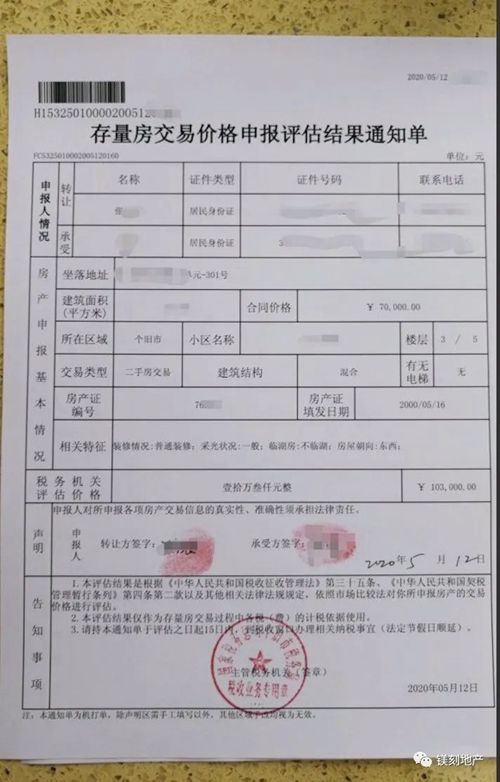 2020/05/12
H15325010000200512
存量房交易价格申报评估结果通知单
FC5325010002005120160
单位：元
申报人情况
名称 证件类型 证件号码 联系电话
转让 张 居民身份证
承受 居民身份证 3
房产申报基本情况
坐落地址 单元-301号
建筑面积（平方米） 合同价格 ￥ 70,000.00
所在区域 个旧市 小区名称 楼层 3 / 5
交易类型 二手房交易 建筑结构 混合 有无电梯 无
房产证编号 76 房产证填发日期 2000/05/16
相关特征 装修情况:普通装修; 采光状况:一般; 临湖房:不临湖; 房屋朝向:东西;
税务机关评估价格 壹拾万叁仟元整 ￥ 103,000.00
声明
申报人对所申报各项房产交易信息的真实性、准确性须承担法律责任。
申报人 转让方签字： 承受方签字：
2020年5月12日
告知事项
1.本评估结果是根据《中华人民共和国税收征收管理法》第三十五条、《中华人民共和国契税
管理暂行条列》第四条第二款以及其他相关法律法规规定，依照市场比较法对你所申报房产的交易
价格进行评估。
2.本评估结果仅作为存量房交易过程中各税（费）的计税依据使用。
3.请持本通知单于评估之日起15日内，到税收窗口办理相关纳税事宜（法定节假日顺延）。
主管税务机关（签章）
税收业务专用章
2020年05月12日
注：本通知单为机打单，除声明区需手工填写以外，其他区域手写均视为无效。
镁刻地产